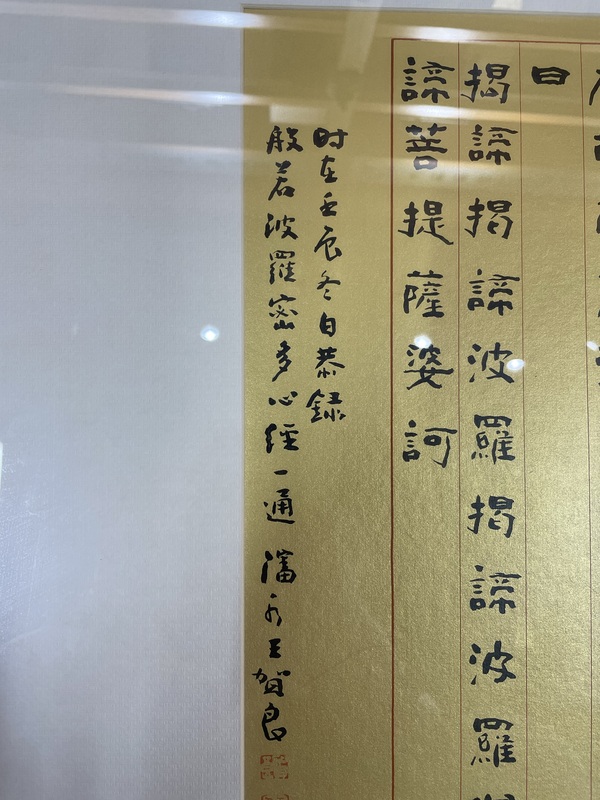 曰
揭諦揭諦波羅揭諦波羅
諦菩提薩婆訶
时在壬辰冬日恭録
般若波羅密多心經一通 瀋水王賀良